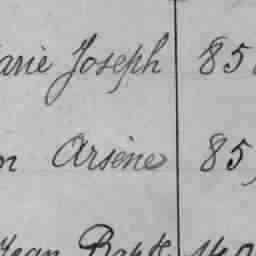 arie Joseph 85
n Arsène 85
Jean Bapt.